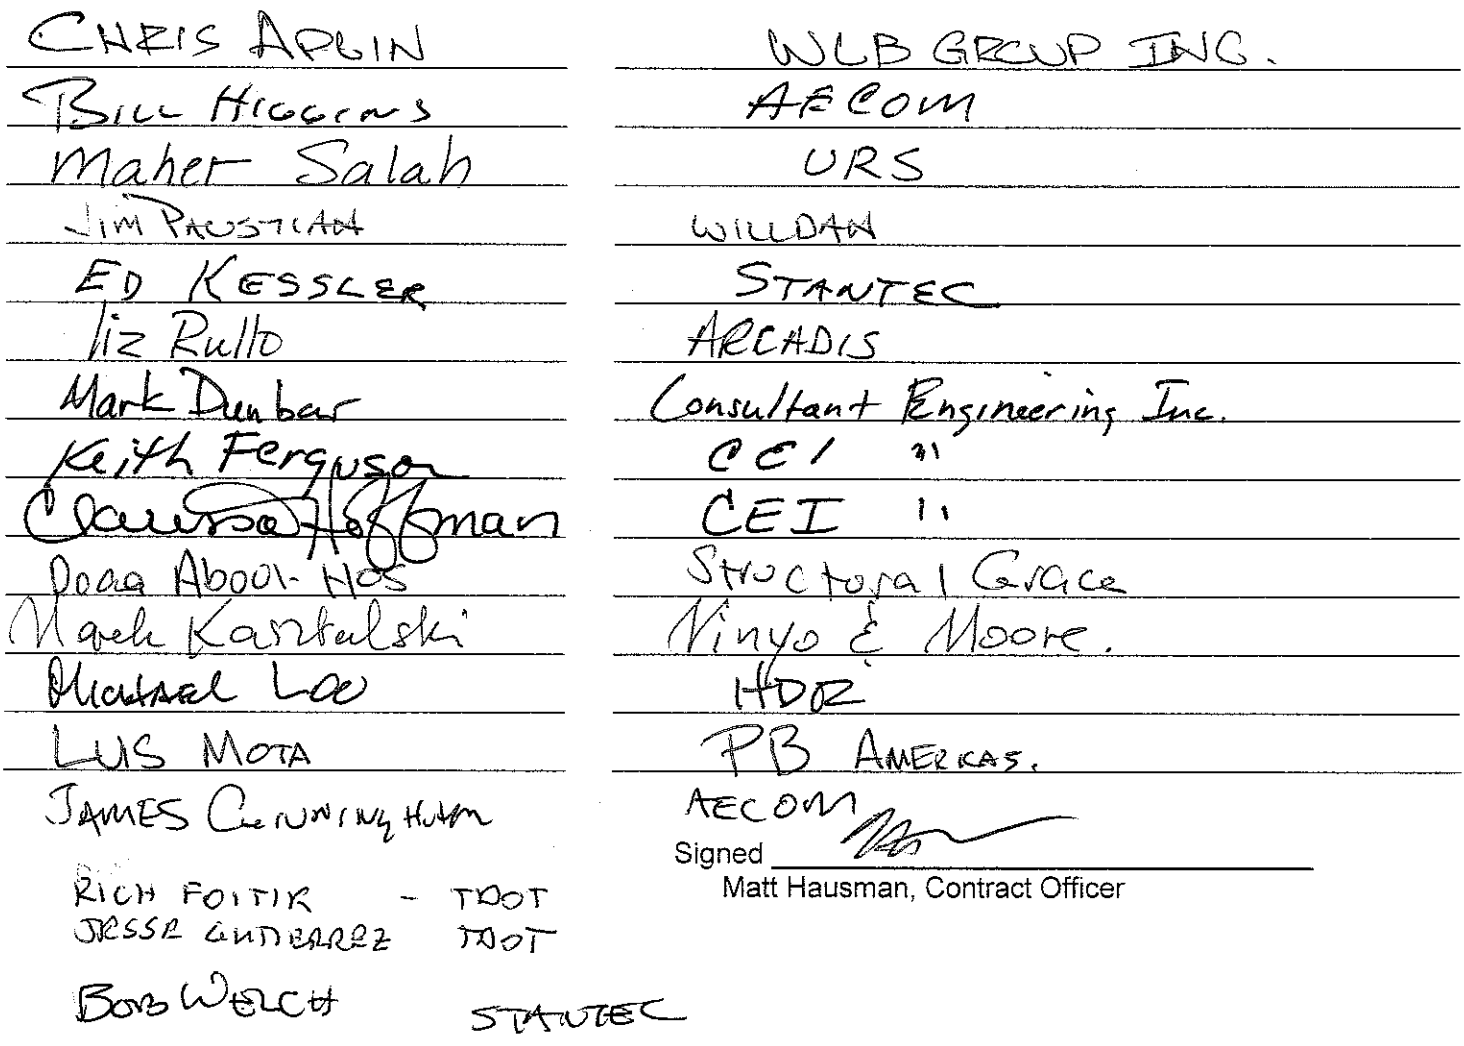 CHRIS APLIN WLB GROUP INC.
BILL HIGGINS AECOM
Maher Salah URS
JIM PAUSTIAN WILLDAN
ED KESSLER STANTEC
Liz Rullo ARCADIS
Mark Dunbar Consultant Engineering Inc.
Keith Ferguson CEI "
Clarissa Hoffman CEI "
Doaa Abool-Hos Structural Grace
Marek Kasztalski Ninyo & Moore.
MICHAEL LEE HDR
LUIS MOTA PB AMERICAS.
JAMES CUNNINGHAM AECOM
Signed
Matt Hausman, Contract Officer
RICH FOITIK - TDOT
JESSE GUTIERREZ TDOT
BOB WELCH STANTEC